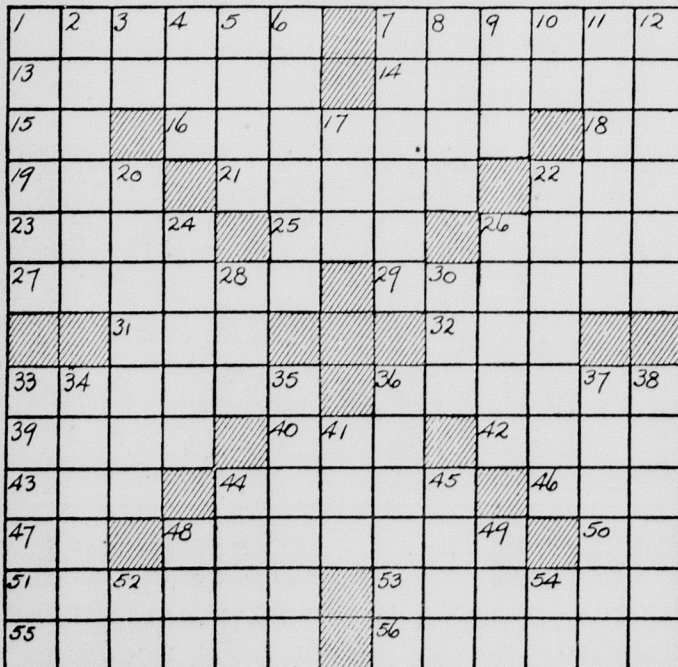 1 2 3 4 5 6 7 8 9 10 11 12
13 14
15 16 17 18
19 20 21 22
23 24 25 26
27 28 29 30
31 32
33 34 35 36 37 38
39 40 41 42
43 44 45 46
47 48 49 50
51 52 53 54
55 56